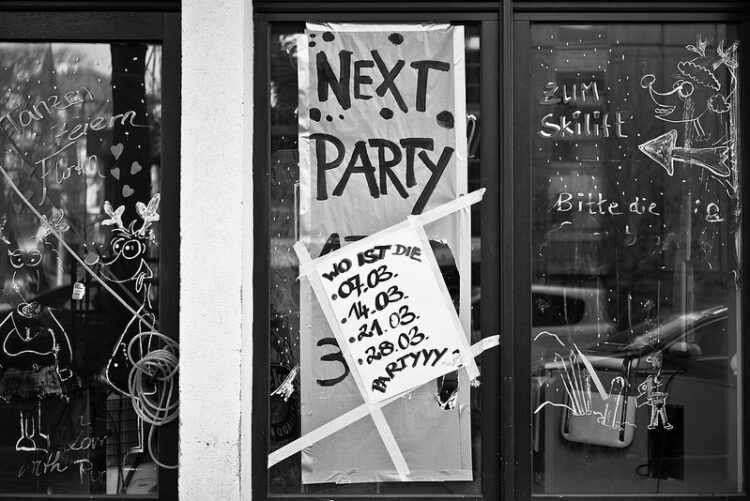 Tanzen
feiern
NEXT
PARTY
WO IST DIE
• 07.03.
• 14.03.
• 21.03.
• 28.03.
PARTYYY
3
ZUM
Skilift
Bitte die